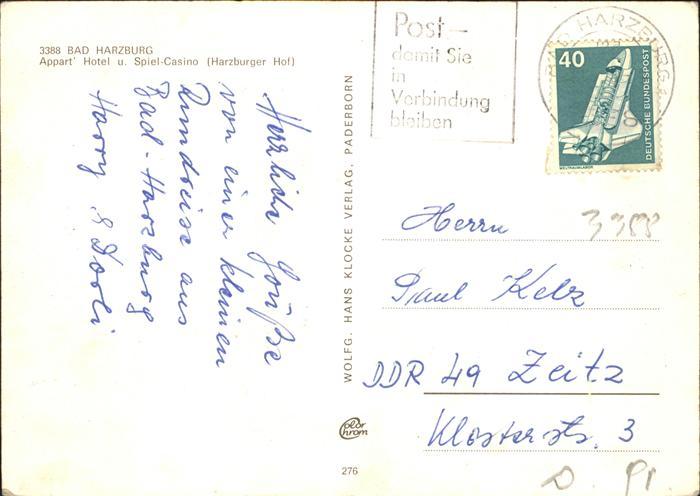 3388 BAD HARZBURG
Appart' Hotel u. Spiel-Casino (Harzburger Hof)
Herzliche Grüße
von einer kleinen
Rundreise aus
Bad-Harzburg
Harry & Dorli
WOLFG. HANS KLOCKE VERLAG, PADERBORN
Color
Chrom
276
Post-
damit Sie
in
Verbindung
bleiben
BAD HARZBURG
40
DEUTSCHE BUNDESPOST
WELTRAUMLABOR
3388
Herrn
Paul Kelz
DDR 49 Zeitz
Klosterstr. 3